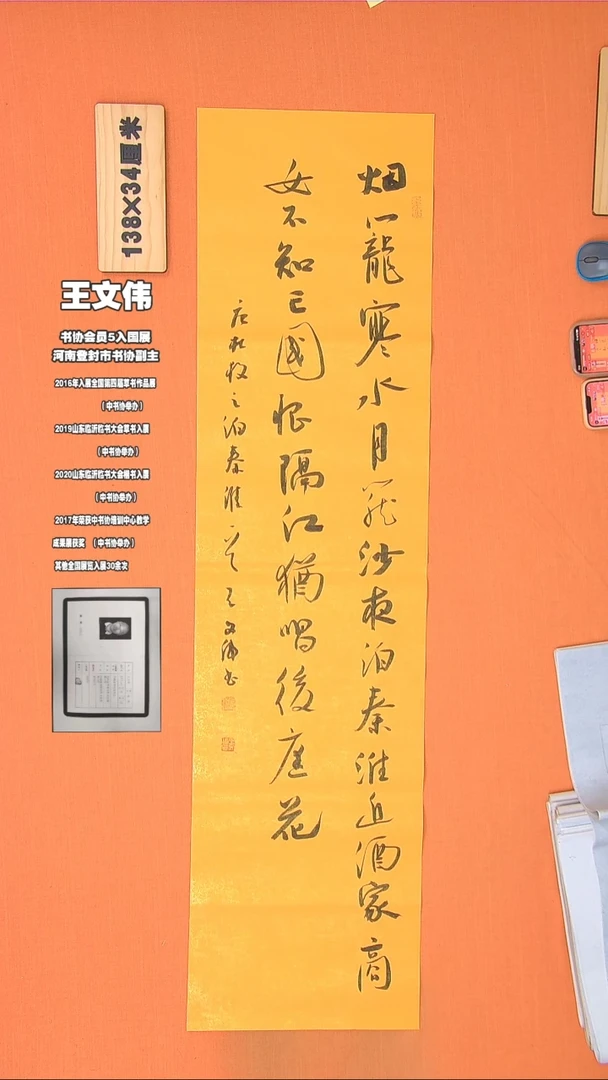 烟籠寒水月籠沙夜泊秦淮近酒家商
女不知亡國恨隔江猶唱後庭花
唐杜牧之泊秦淮一首 王文偉書
138×34厘米
王文伟
书协会员5入国展
河南登封市书协副主
2016年入展全国第四届草书作品展
（中书协举办）
2019山东临沂临书大会草书入展
（中书协举办）
2020山东临沂临书大会楷书入展
（中书协举办）
2017年荣获中书协培训中心教学
成果展获奖 （中书协举办）
其他全国展览入展30余次